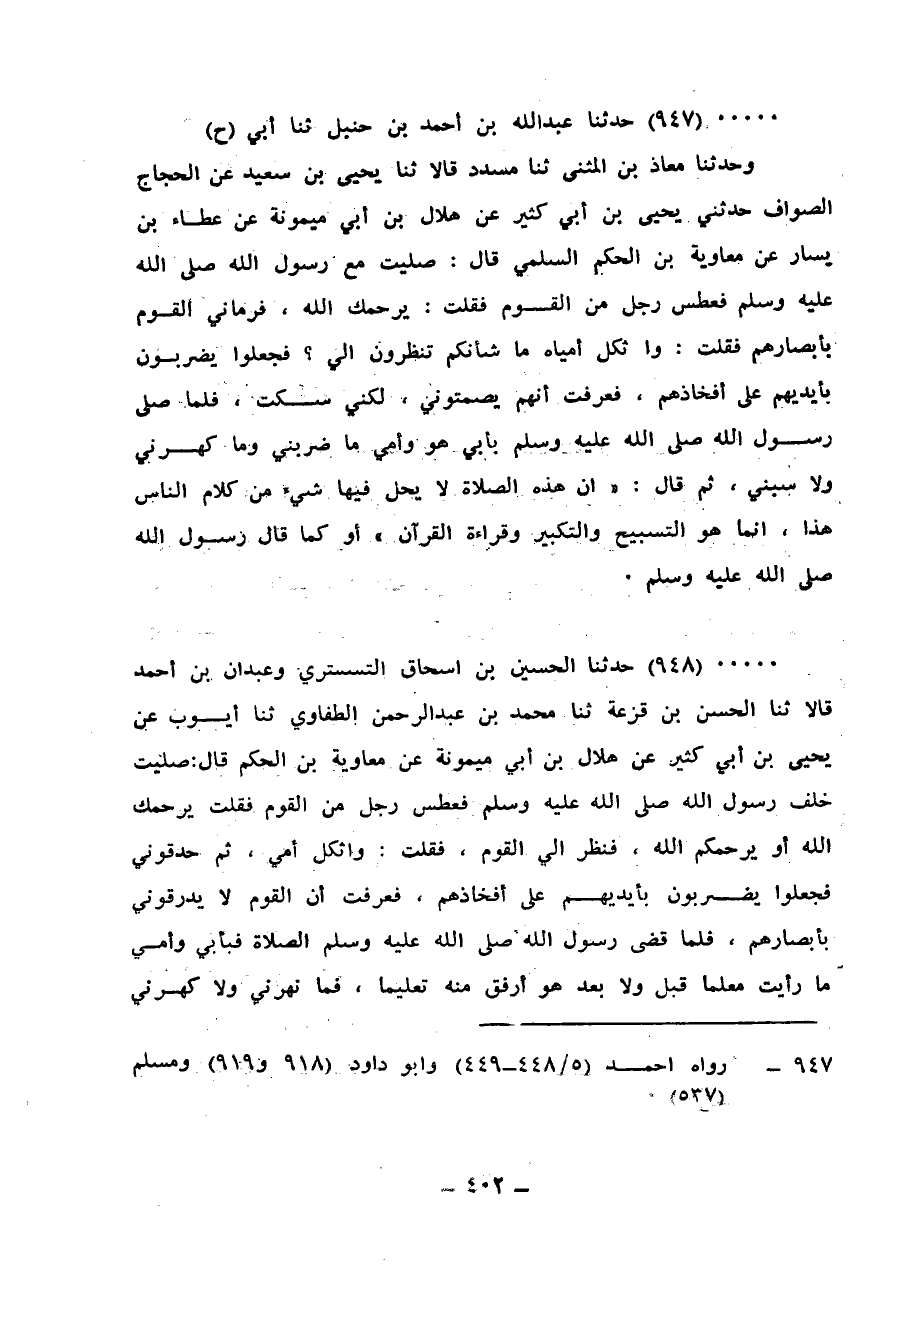 ••••• (٩٤٧) حدثنا عبدالله بن أحمد بن حنبل ثنا أبي (ح)
وحدثنا معاذ بن المثنى ثنا مسدد قالا ثنا يحيى بن سعيد عن الحجاج
الصواف حدثني يحيى بن أبي كثير عن هلال بن أبي ميمونة عن عطاء بن
يسار عن معاوية بن الحكم السلمي قال : صليت مع رسول الله صلى الله
عليه وسلم فعطس رجل من القوم فقلت : يرحمك الله ، فرماني القوم
بأبصارهم فقلت : وا ثكل أمياه ما شأنكم تنظرون الي ؟ فجعلوا يضربون
بأيديهم على أفخاذهم ، فعرفت أنهم يصمتوني ، لكني سكت ، فلما صلى
رسول الله صلى الله عليه وسلم بأبي هو وأمي ما ضربني وما كهرني
ولا سبني ، ثم قال : « ان هذه الصلاة لا يحل فيها شيء من كلام الناس
هذا ، انما هو التسبيح والتكبير وقراءة القرآن » أو كما قال رسول الله
صلى الله عليه وسلم ٠
••••• (٩٤٨) حدثنا الحسين بن اسحاق التستري وعبدان بن أحمد
قالا ثنا الحسن بن قزعة ثنا محمد بن عبدالرحمن الطفاوي ثنا أيوب عن
يحيى بن أبي كثير عن هلال بن أبي ميمونة عن معاوية بن الحكم قال:صليت
خلف رسول الله صلى الله عليه وسلم فعطس رجل من القوم فقلت يرحمك
الله أو يرحمكم الله ، فنظر الي القوم ، فقلت : واثكل أمي ، ثم حدقوني
فجعلوا يضربون بأيديهم على أفخاذهم ، فعرفت أن القوم لا يدرقوني
بأبصارهم ، فلما قضى رسول الله صلى الله عليه وسلم الصلاة فبأبي وأمي
ما رأيت معلما قبل ولا بعد هو أرفق منه تعليما ، فما نهرني ولا كهرني
٩٤٧ – رواه احمد (٥/٤٤٨–٤٤٩) وابو داود (٩١٨ و٩١٩) ومسلم
(٥٣٧) ٠
– ٤٠٢ –